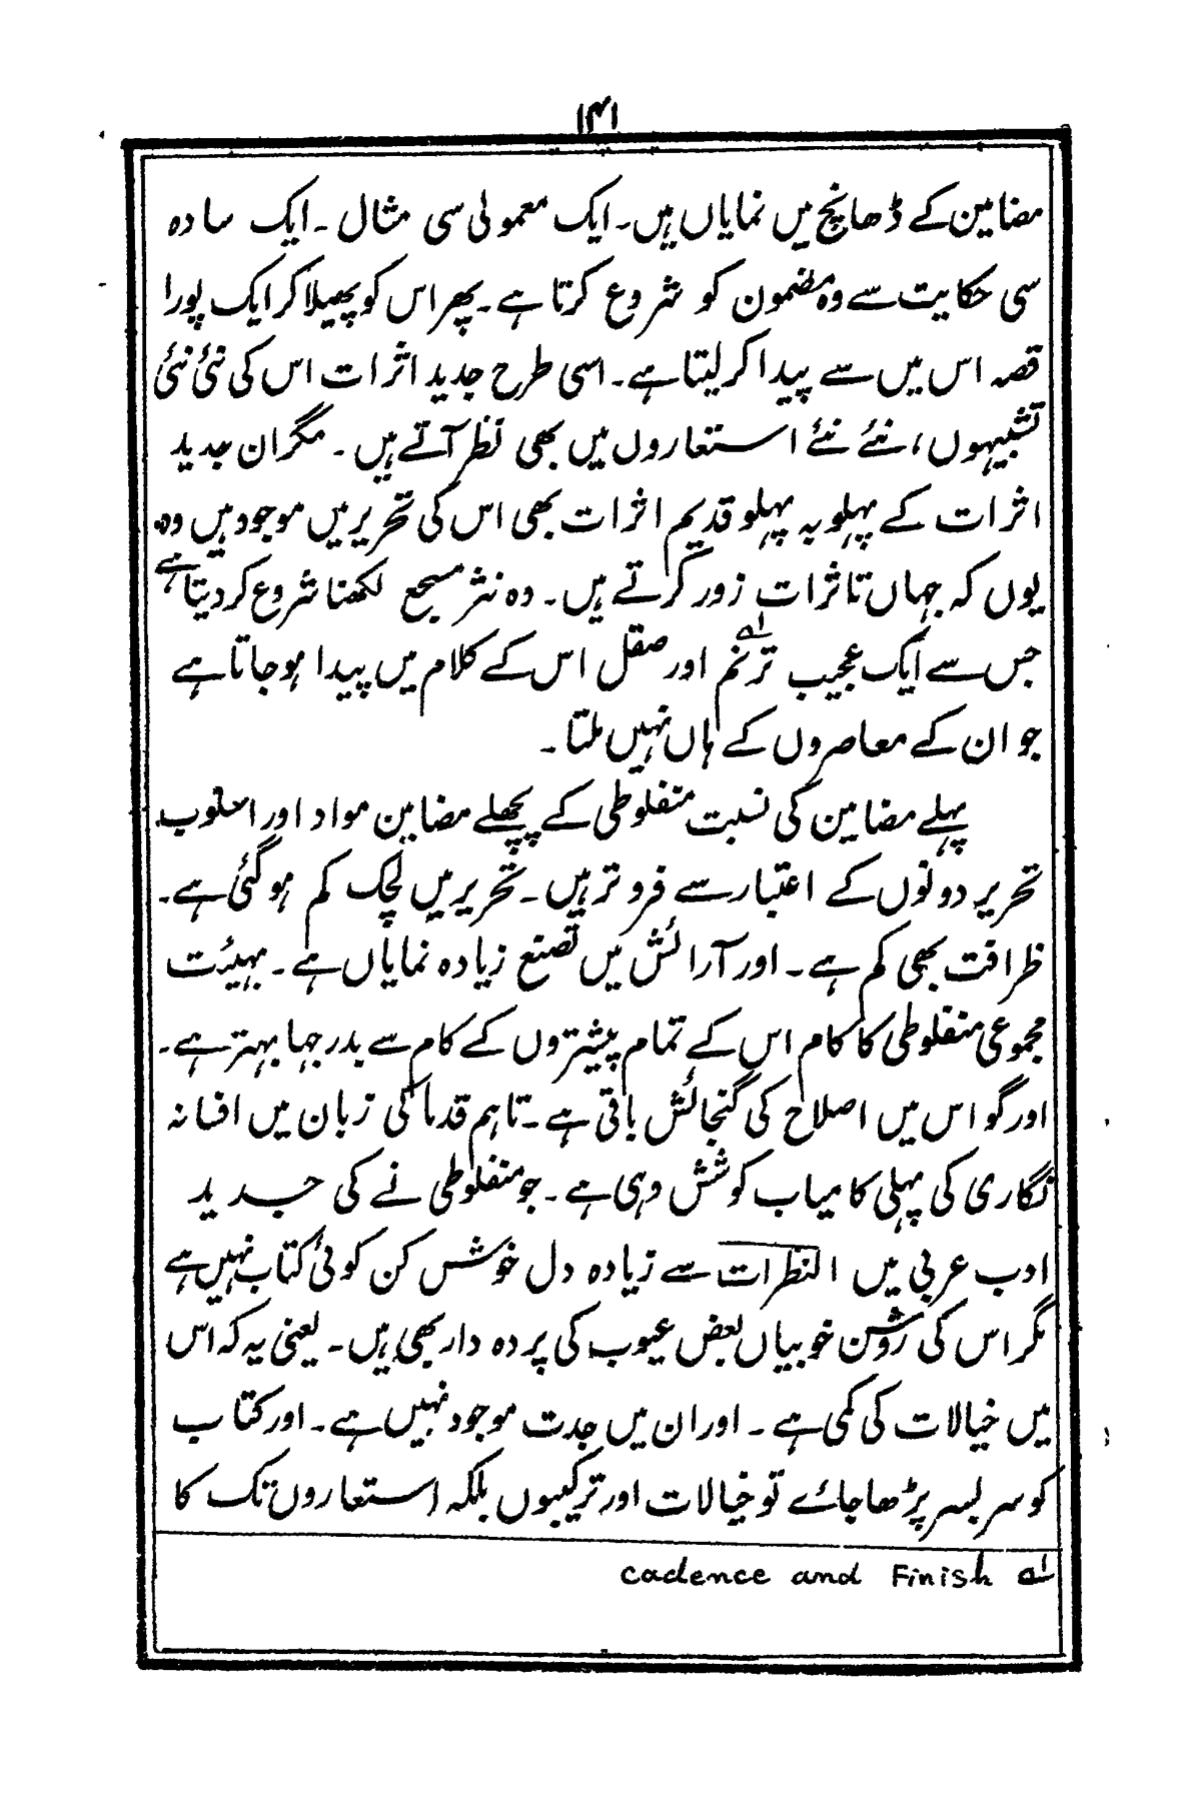 ۱۴۱
مضامین کے ڈھانچ میں نمایاں ہیں۔ ایک معمولی سی مثال ۔ ایک سادہ
سی حکایت سے وہ مضمون کو شروع کرتا ہے۔ پھر اس کو پھیلا کر ایک پورا
قصہ اس میں سے پیدا کر لیتا ہے۔ اسی طرح جدید اثرات اس کی نئی نئی
تشبیہوں، نئے نئے استعاروں میں بھی نظر آتے ہیں ۔ مگر ان جدید
اثرات کے پہلو بہ پہلو قدیم اثرات بھی اس کی تحریر میں موجود ہیں وہ
یوں کہ جہاں تاثرات زور کرتے ہیں۔ وہ نثر مسجع لکھنا شروع کر دیتا ہے
جس سے ایک عجیب ترنم اور صقل ۱؎ اس کے کلام میں پیدا ہو جاتا ہے
جو ان کے معاصروں کے ہاں نہیں ملتا ۔
پہلے مضامین کی نسبت منفلوطی کے پچھلے مضامین مواد اور اسلوب
تحریر دونوں کے اعتبار سے فروتر ہیں ۔ تحریر میں لچک کم ہو گئی ہے۔
ظرافت بھی کم ہے ۔ اور آرائش میں تصنع زیادہ نمایاں ہے ۔ بہیئت
مجموعی منفلوطی کا کام اس کے تمام پیشتروں کے کام سے بدرجہا بہتر ہے۔
اور گو اس میں اصلاح کی گنجائش باقی ہے ۔ تاہم قدما کی زبان میں افسانہ
نگاری کی پہلی کامیاب کوشش وہی ہے ۔ جو منفلوطی نے کی جدید
ادب عربی میں النظرات سے زیادہ دل خوش کن کوئی کتاب نہیں ہے
مگر اس کی روشن خوبیاں بعض عیوب کی پردہ دار بھی ہیں ۔ یعنی یہ کہ اس
میں خیالات کی کمی ہے ۔ اور ان میں جدت موجود نہیں ہے ۔ اور کتاب
کو سر بسر پڑھا جائے تو خیالات اور ترکیبوں بلکہ استعاروں تک کا
۱؎ cadence and Finish